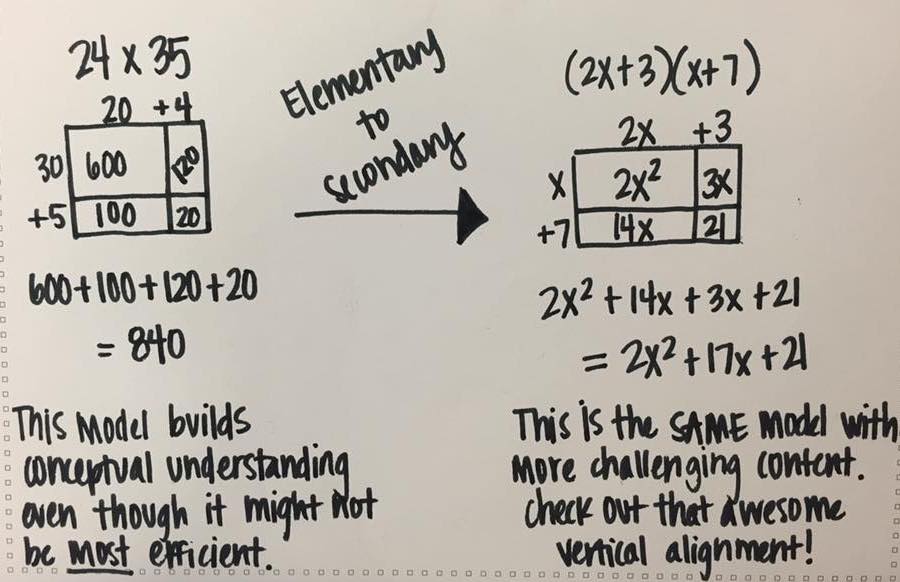 24 x 35
20 +4
30 600 120
+5 100 20
600+100+120+20
= 840
This model builds
conceptual understanding
even though it might not
be most efficient.
Elementary
to
secondary
(2x+3)(x+7)
2x +3
x 2x² 3x
+7 14x 21
2x² +14x +3x +21
= 2x²+17x+21
This is the SAME model with
more challenging content.
check out that awesome
vertical alignment!